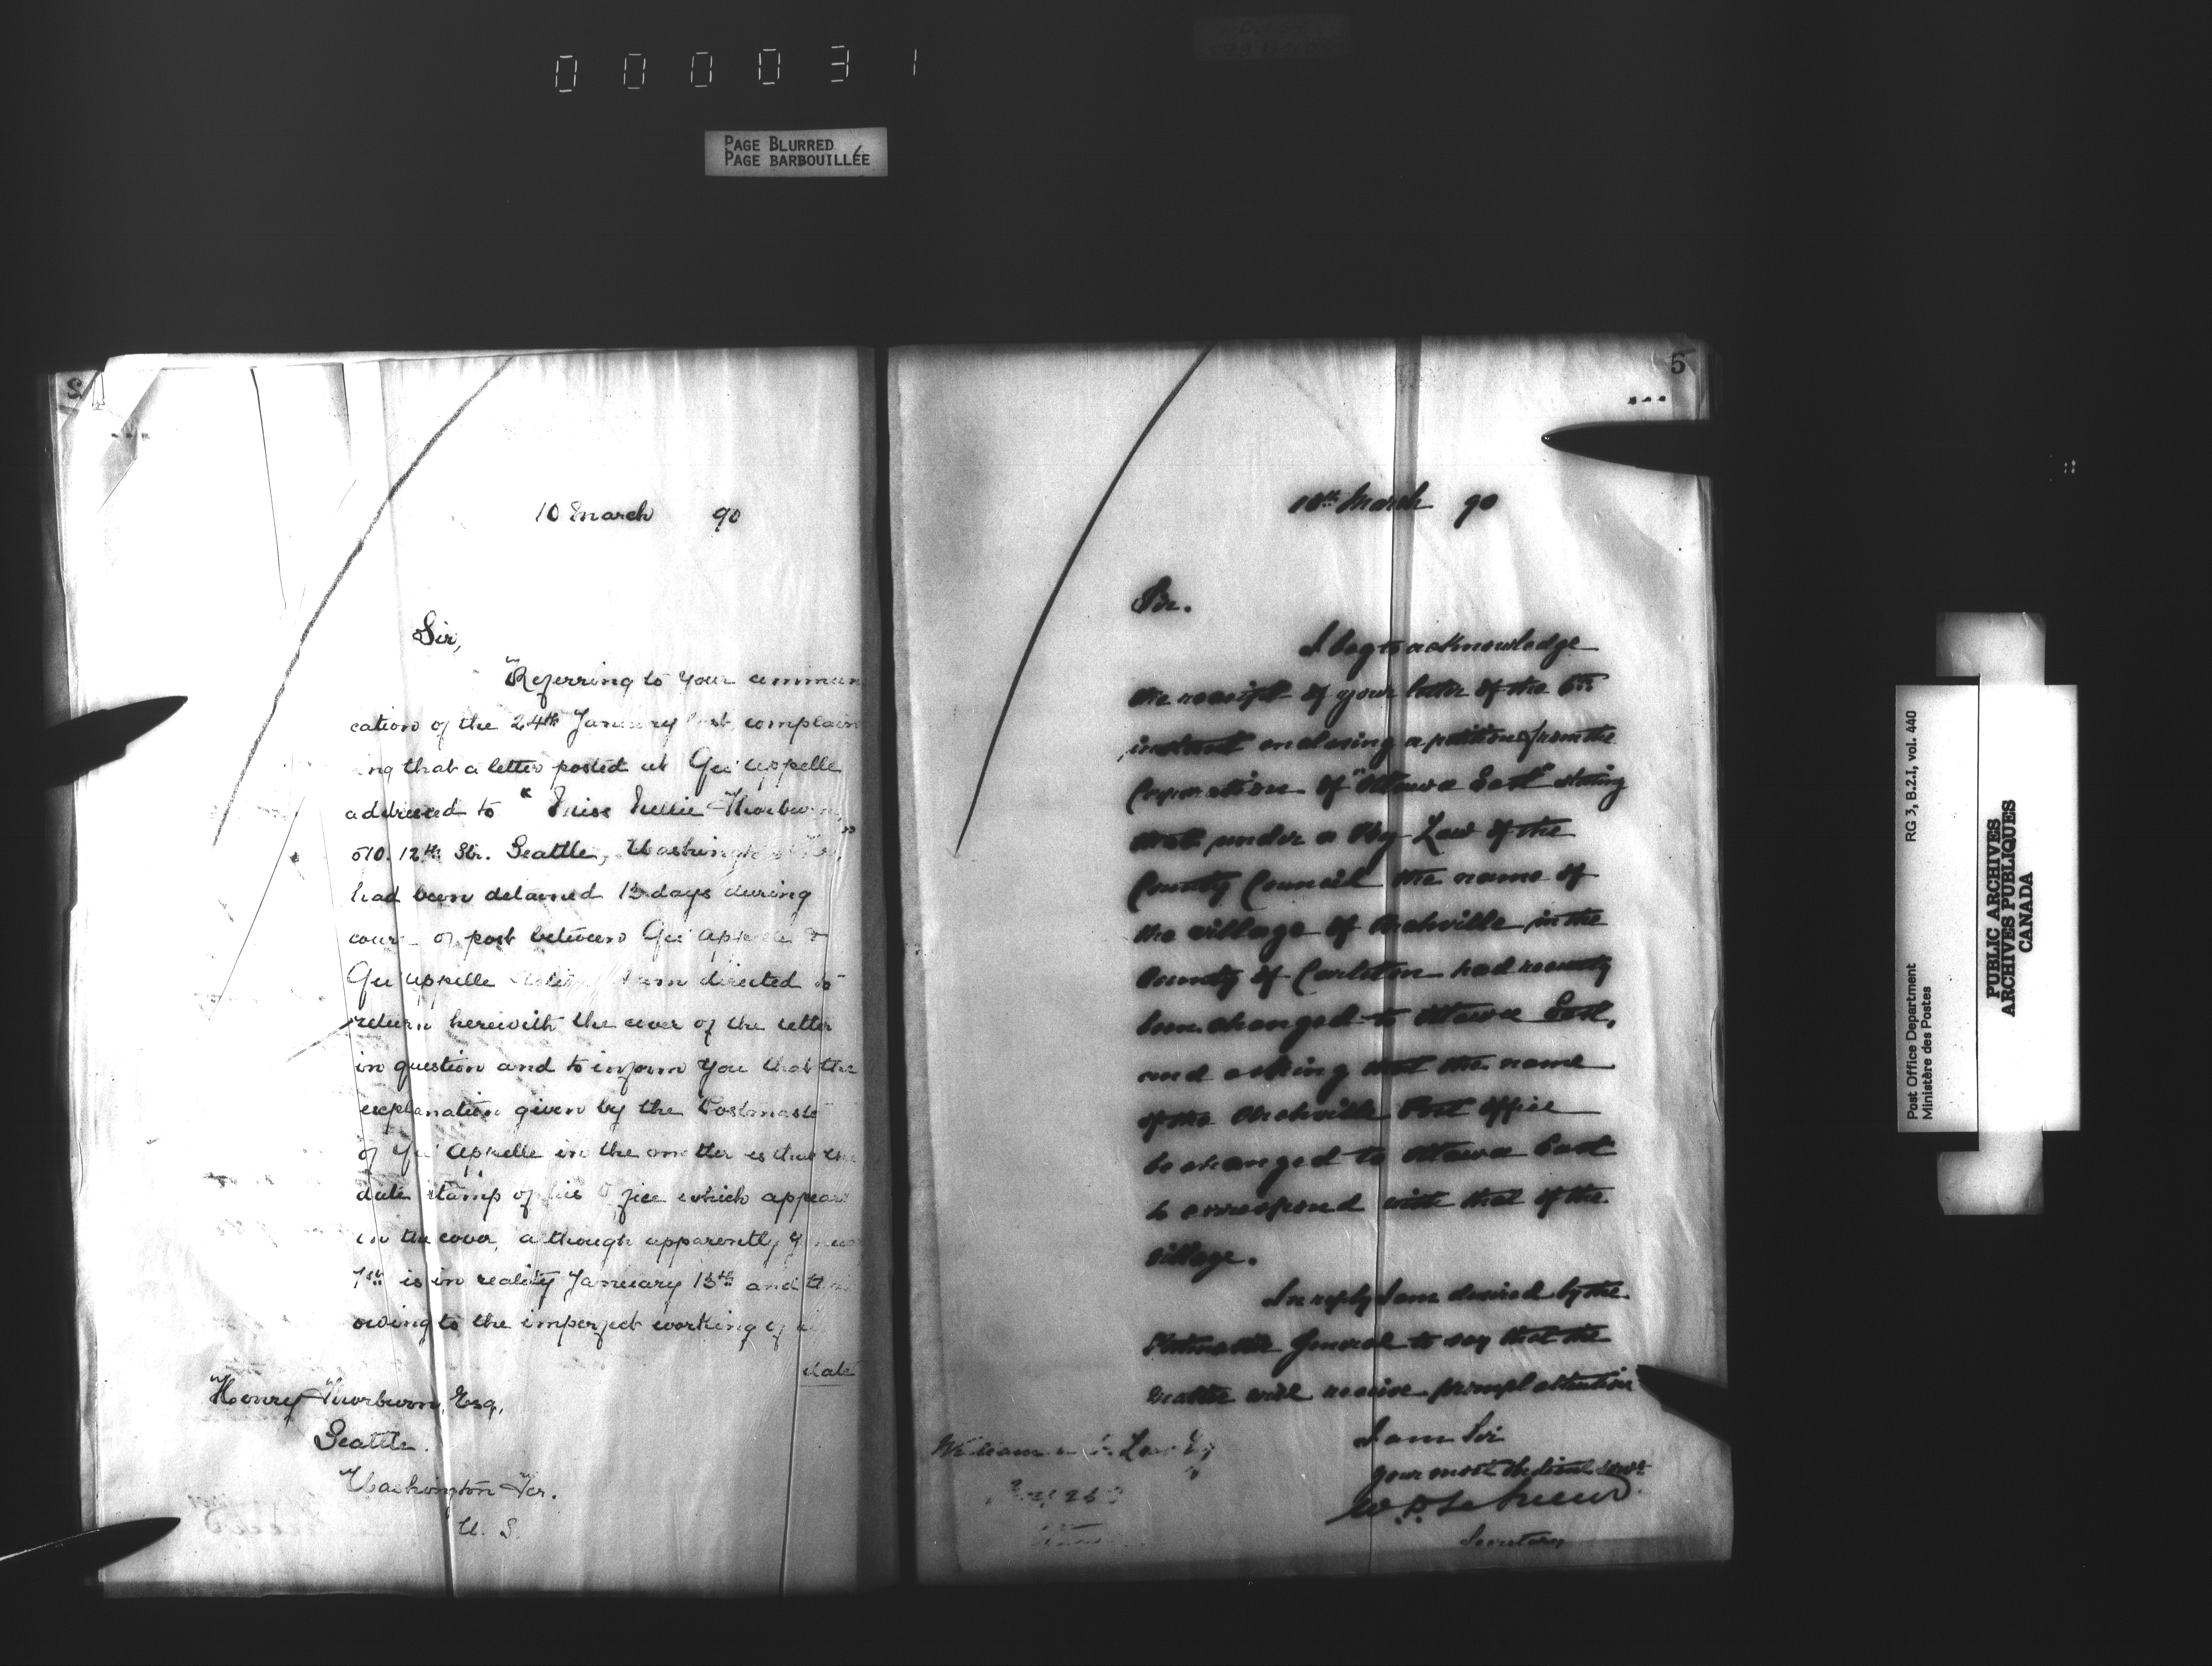 000031
PAGE BLURRED
PAGE BARBOUILLÉE
10 March 90
Sir,
Referring to your commun
cation of the 24th January last complain
ing that a letter posted at Qu'Appelle
addressed to "Miss Nellie Thorburn,"
510. 12th Str. Seattle, Washington Ter,
had been detained 13 days during
course of post between Qu'Appelle &
Qu'Appelle Station I am directed to
return herewith the cover of the letter
in question and to inform you that the
explanation given by the Postmaster
of Qu'Appelle in the matter is that the
date stamp of his Office which appears
on the cover, although apparently
1st is in reality January 13th and that
owing to the imperfect working of
date
Henry Thorburn, Esq,
Seattle.
Washington Ter.
U. S.
5
10th March 90
Sir.
I beg to acknowledge
the receipt of your letter of the 6th
instant enclosing a petition from the
Corporation of "Ottawa East" stating
that under a By Law of the
County Council the name of
the village of Archville in the
County of Carleton had recently
been changed to Ottawa East,
and asking that the name
of the Archville Post Office
be changed to Ottawa East
to correspond with that of the
village.
In reply I am desired by the
Postmaster General to say that the
matter will receive prompt attention
I am Sir
your most obedient servt
W. D. LeSueur
Secretary
William
Post Office Department RG 3, B.2.I, vol. 440
Ministère des Postes
PUBLIC ARCHIVES
ARCHIVES PUBLIQUES
CANADA